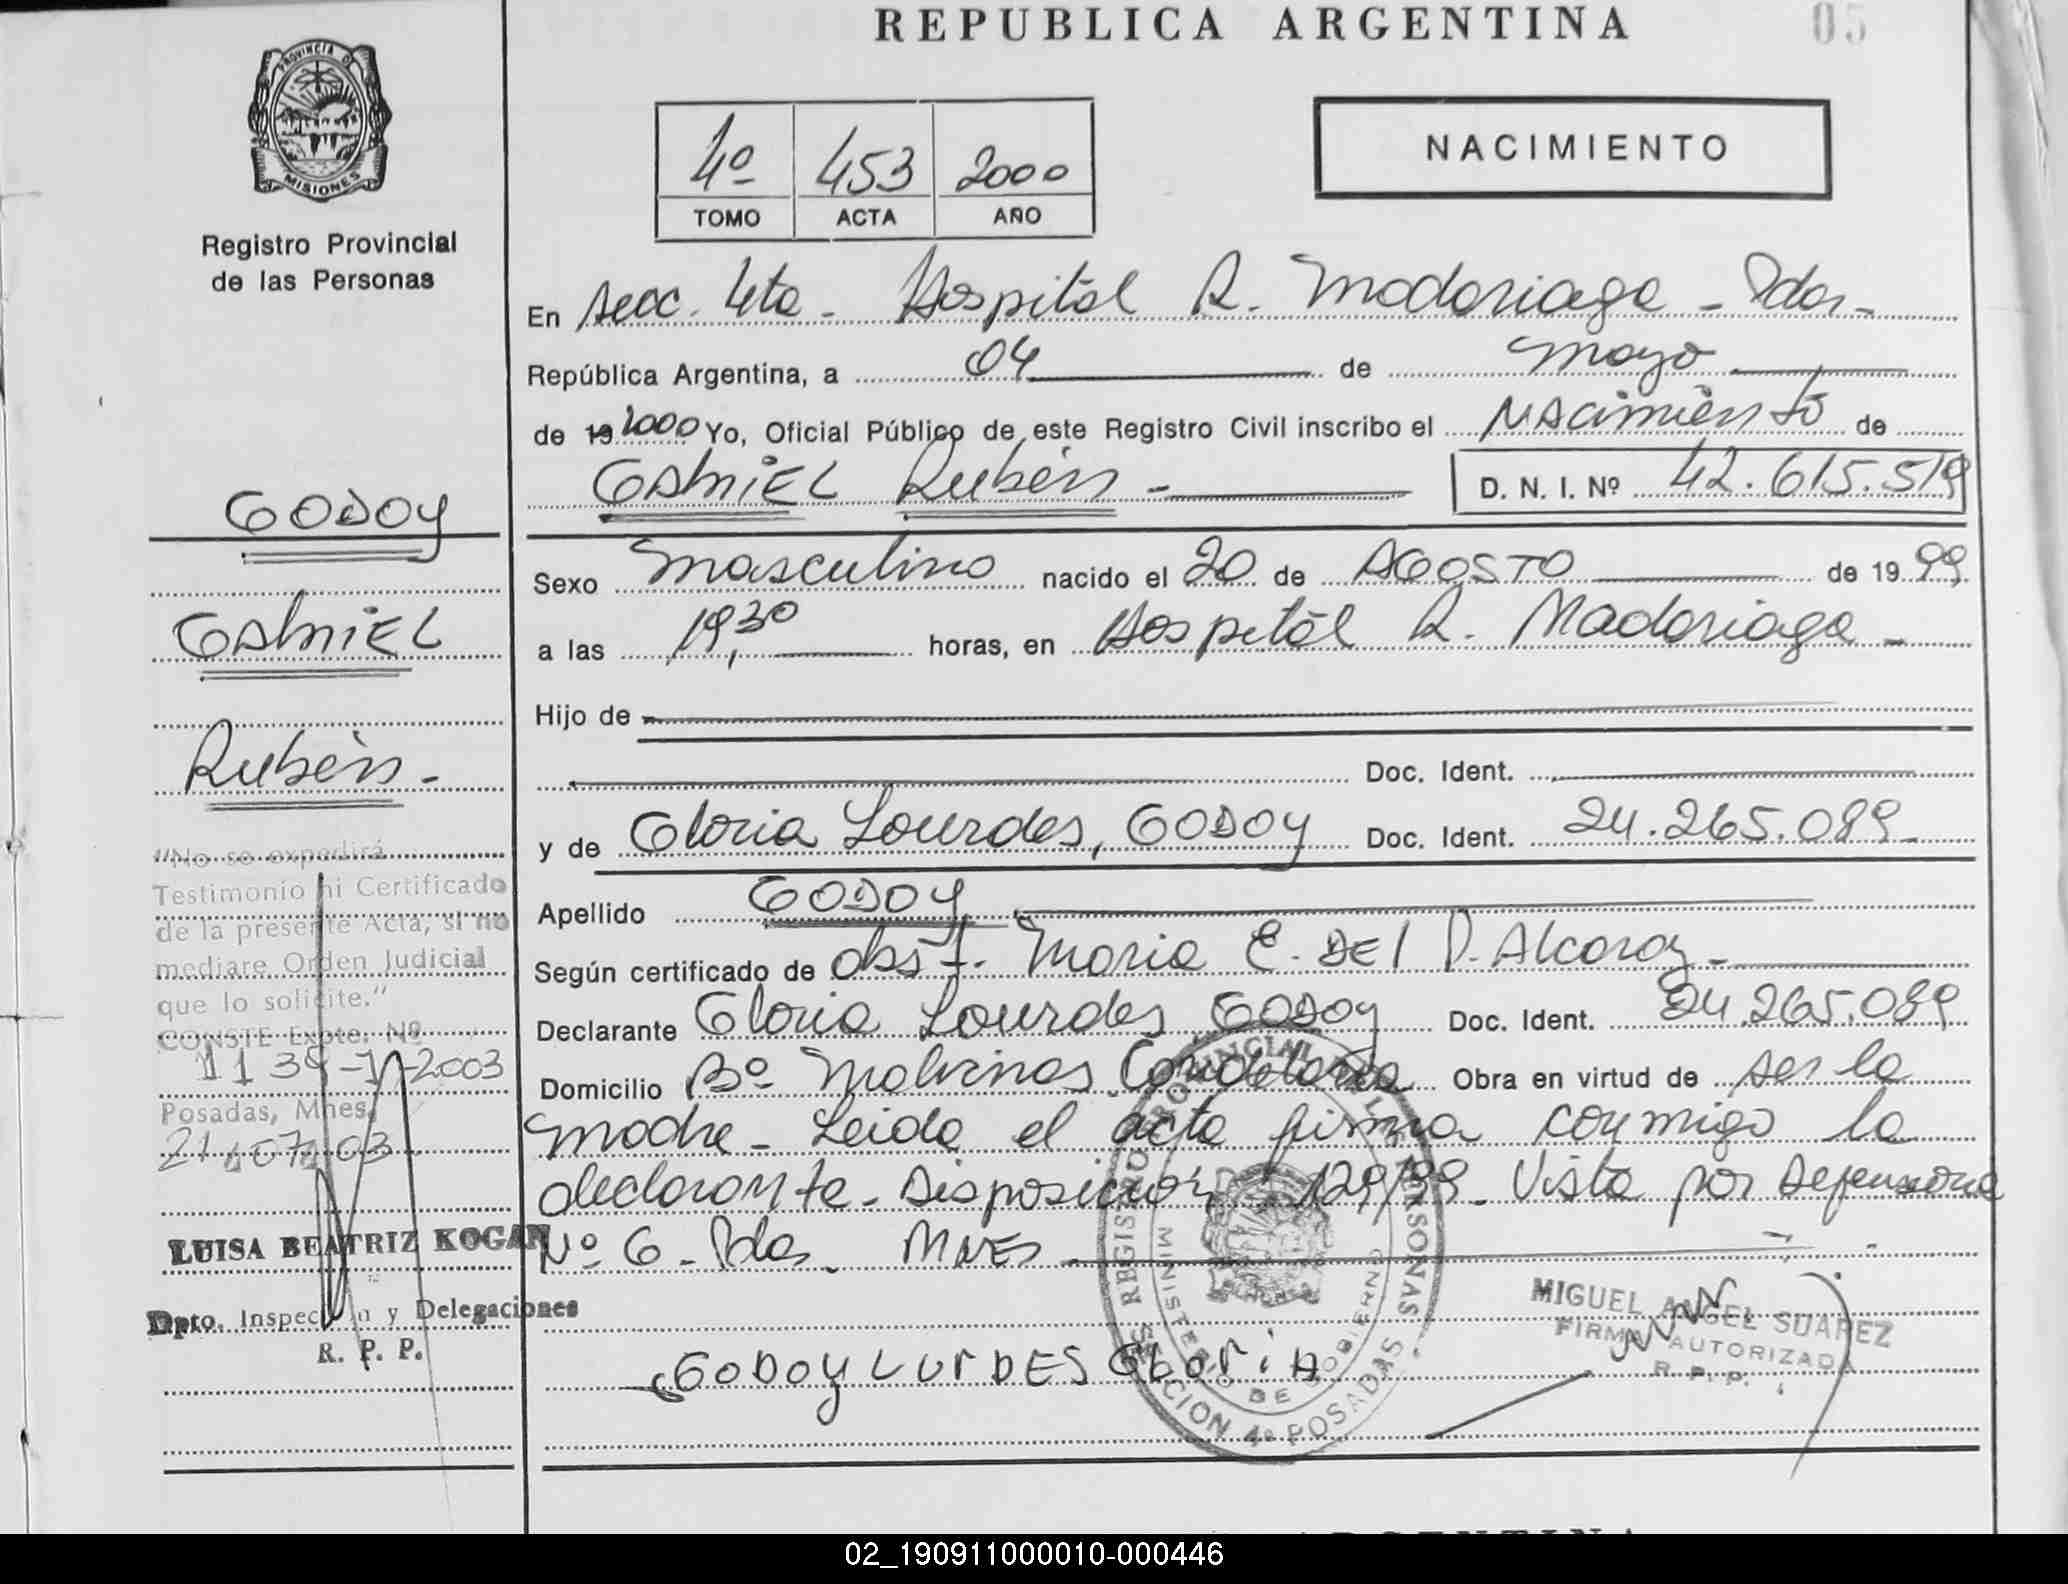 REPUBLICA ARGENTINA
05
PROVINCIA DE
MISIONES
Registro Provincial
de las Personas
4º 453 2000
TOMO ACTA AÑO
NACIMIENTO
En Secc. 4ta - Hospital R. Madariaga - Pdas -
República Argentina, a 04 de Mayo
de 19 2000 Yo, Oficial Público de este Registro Civil inscribo el Nacimiento de
GABRIEL Rubén - D. N. I. Nº 42.615.519
Sexo Masculino nacido el 20 de AGOSTO de 19 99
a las 19,30 horas, en Hospital R. Madariaga -
Hijo de
Doc. Ident.
y de Gloria Lourdes, GODOY Doc. Ident. 24.265.089 -
Apellido GODOY
Según certificado de Obst. Maria E. DEL P. Alcaraz -
Declarante Gloria Lourdes GODOY Doc. Ident. 24.265.089
Domicilio Bº Malvinas Candelaria Obra en virtud de ser la
madre - Leida el acta firma conmigo la
declarante - Disposición 129/99 - Vista por Defensoria
Nº 6 - Pdas. Mnes -
GODOY LURDES GLORIA
GODOY
GABRIEL
Rubén -
"No se expedirá
Testimonio ni Certificado
de la presente Acta, si no
mediare Orden Judicial
que lo solicite."
CONSTE Expte. Nº
2003
Posadas, Mnes,
21 07 03
LUISA BEATRIZ KOGAN
Dpto. Inspección y Delegaciones
R. P. P.
REGISTRO PROVINCIAL DE LAS PERSONAS
MINISTERIO DE GOBIERNO
SECCION 4º POSADAS
MIGUEL ANGEL SUAREZ
FIRMA AUTORIZADA
R. P. P.
ARGENTINA
02_190911000010-000446